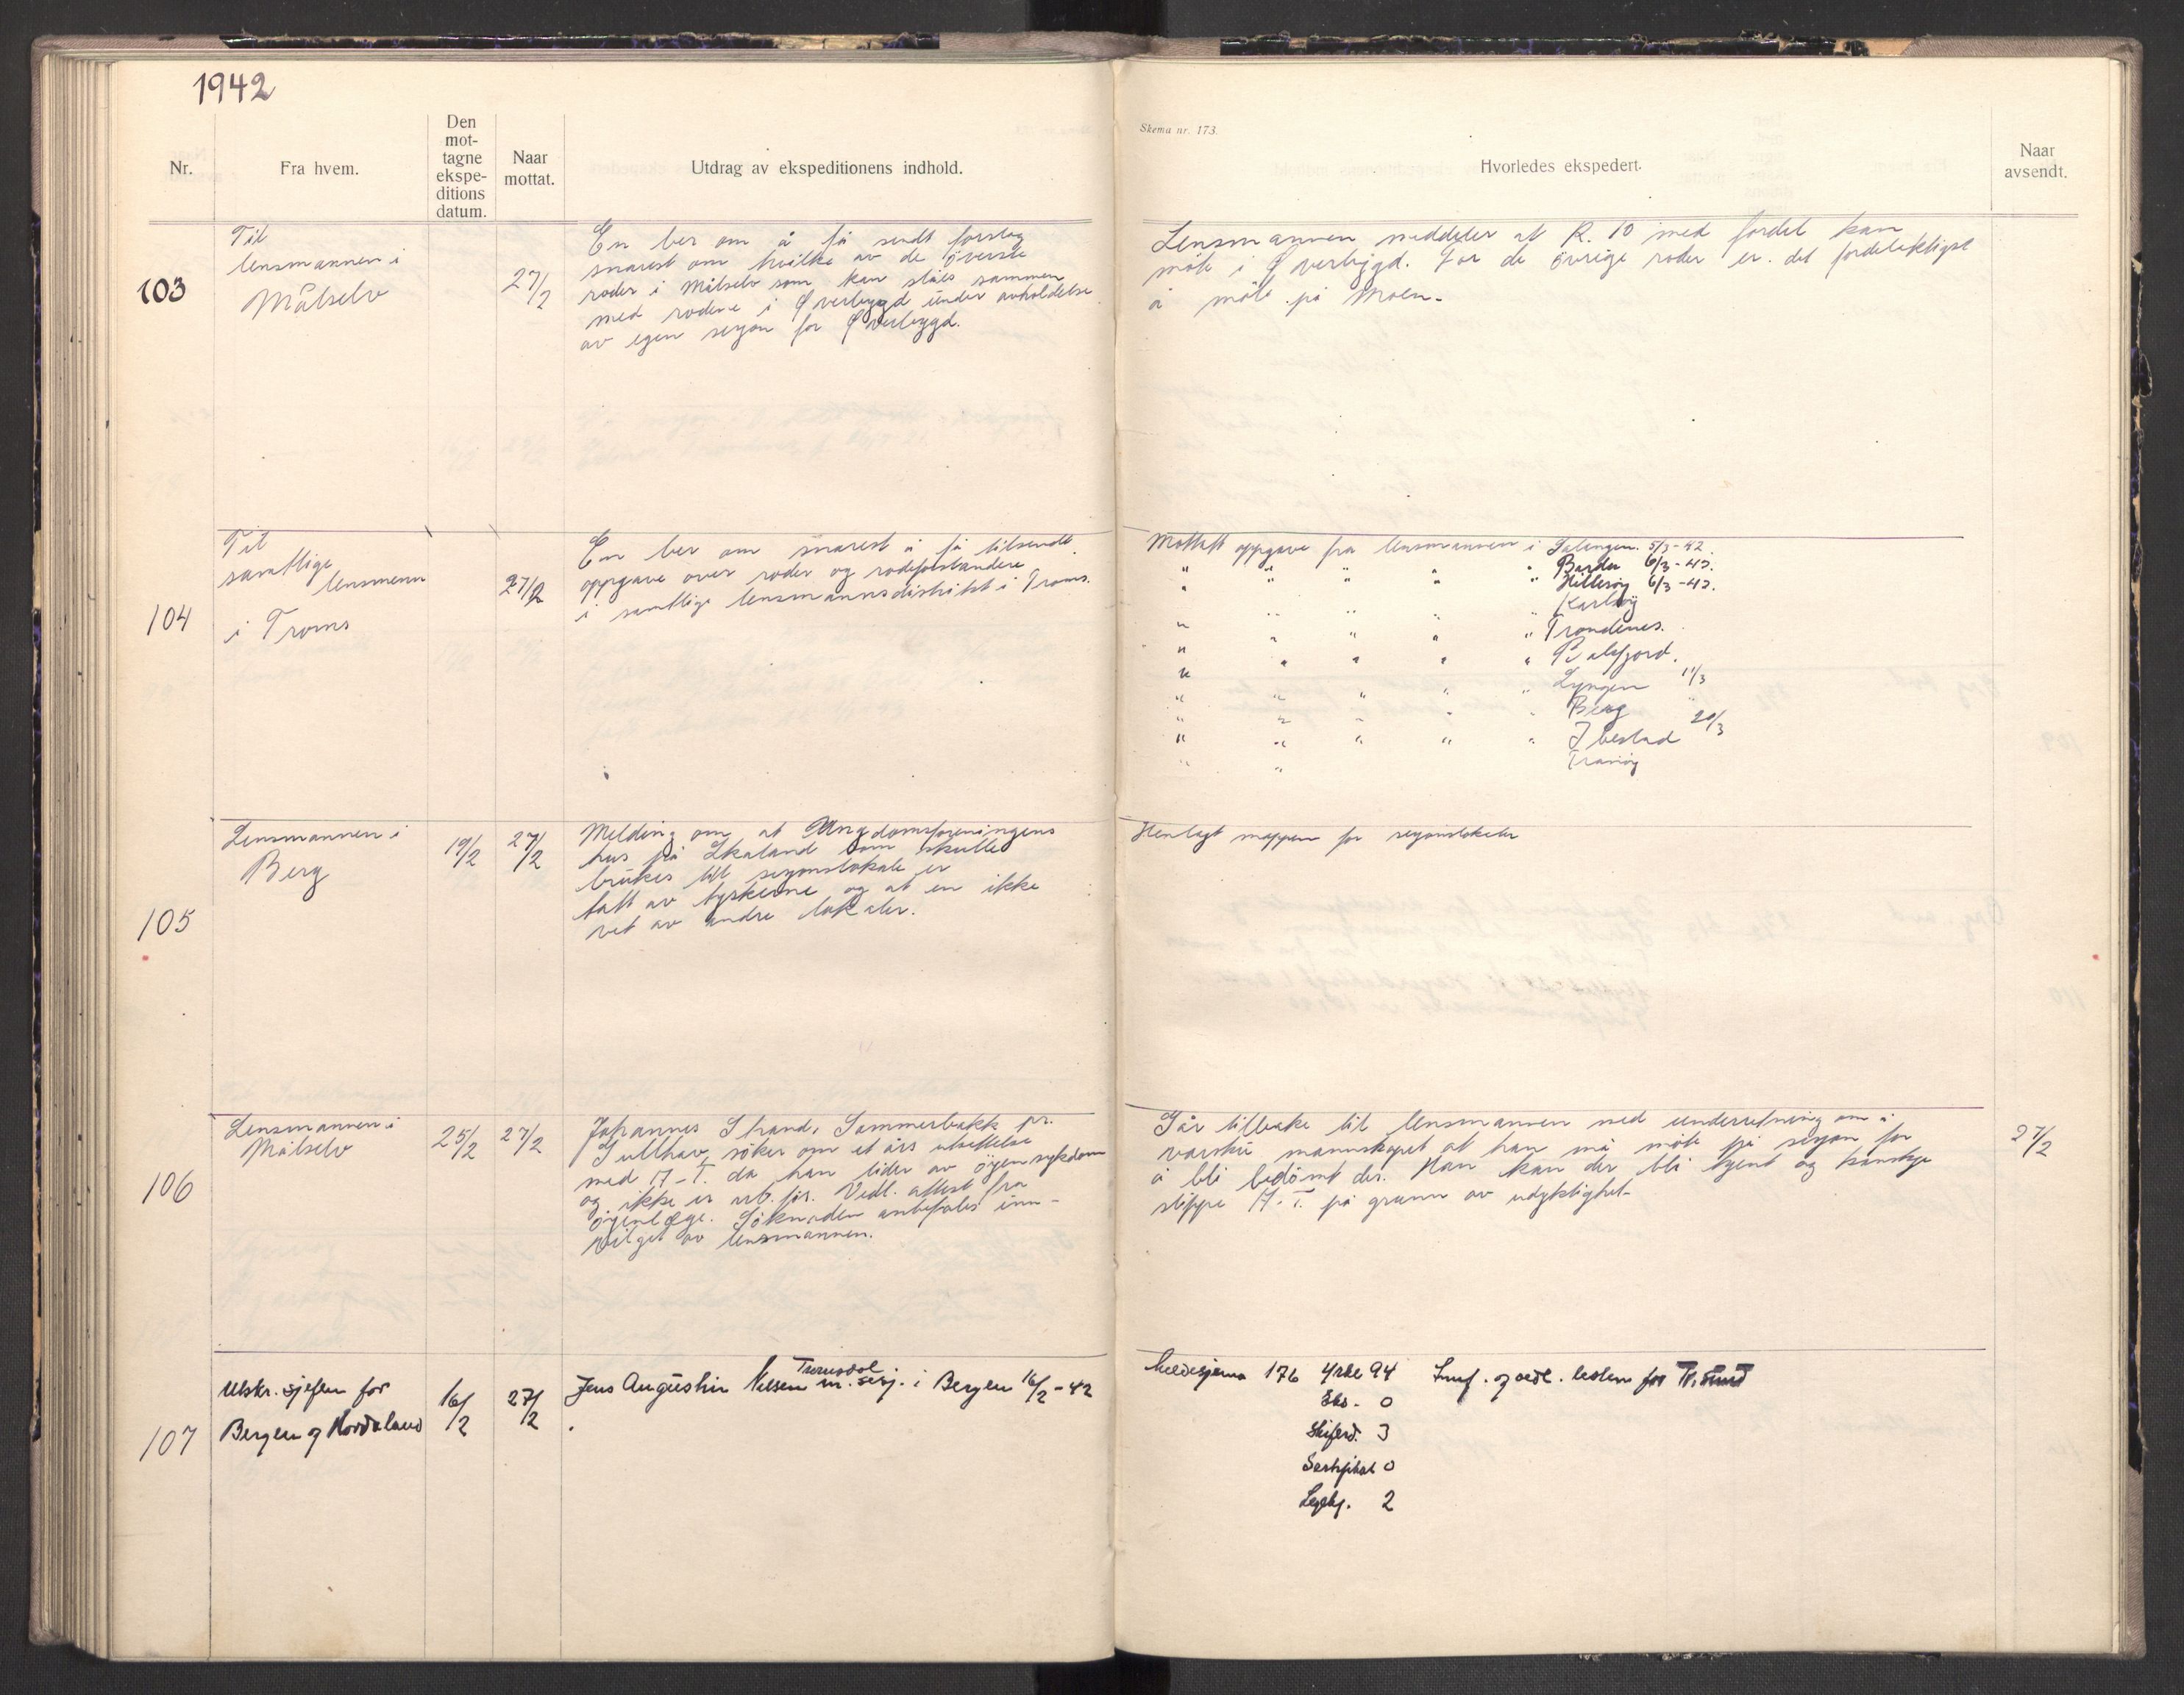 1942
Skema nr. 173.
Nr.
Fra hvem.
Den
mot-
tagne
ekspe-
ditions
datum.
Naar
mottat.
Utdrag av ekspeditionens indhold.
Hvorledes ekspedert.
Naar
avsendt.
103
Til
lensmannen i
Målselv
27/2
En ber om å få sendt forslag
snarest om hvilke av de överste
roder i Målselv som kan slåes sammen
med rodene i Øverbygd under avholdelse
av egen sesjon for Øverbygd.
Lensmannen meddeler at R. 10 med fordel kan
möte i Øverbygd. For de övrige roder er det fordelaktigst
å möte på Moen.
104
Til
samtlige
lensmenn
i Troms
27/2
En ber om snarest å få tilsendt
oppgave over roder og rodeforstandere
i samtlige lensmannsdistrikt i Troms.
Mottatt oppgave fra lensmannen i Salangen. 5/3-42.
" " " " " Bardu 6/3-42.
" " Hillesöy 6/3-42.
" " " " Karlsöy
" " " " " Trondenes.
" " " " " Balsfjord.
" " " " " Lyngen 11/3
" " " " " Berg "
" " " " " Ibestad 20/3
" " Tranöy
105
Lensmannen i
Berg
19/2
27/2
Melding om at Ungdomsforeningens
hus på Skaland som skulle
brukes till sesjonslokale er
tatt av tyskerne og at en ikke
vet av andre lokaler.
Henlagt mappen for sesjonslokaler
106
Lensmannen i
Målselv
25/2
27/2
Johannes Strand, Sommerbakk pr.
Gullhav, söker om et års utsettelse
med A-T. da han lider av öyensykdom
og ikke er arb. för. Vedl. attest fra
öyenlege. Söknaden anbefales inn-
vilget av lensmannen.
Går tilbake til lensmannen med underretning om å
varsku mannskapet at han må möte på sesjon for
å bli bedömt der. Han kan der bli kjent og kanskje
slippe A.T. på grunn av udyktighet.
27/2
107
Utskr.sjefen for
Bergen og Hordaland
16/2
27/2
Tromsdal
Jens Augustin Nilsen m. sesj. i Bergen 16/2-42
.
Meldesjema 176 Yrke 94
Eks. 0
Skiferd. 3
Sertifikat 0
Legebg. 2